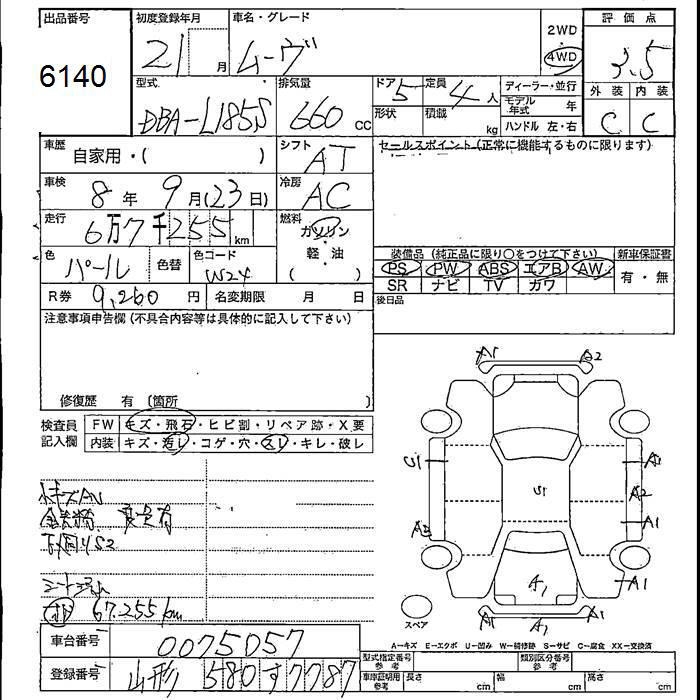 出品番号 初度登録年月 車名・グレード 2WD 評価点
6140 21 月 ムーヴ 4WD 3.5
型式 排気量 ドア 5 定員 4 人 ディーラー・並行 外装 内装
DBA-L185S 660 cc 形状 積載 kg モデル年式 年 C C
ハンドル 左・右
車歴 自家用・( ) シフト AT セールスポイント (正常に機能するものに限ります)
車検 8 年 9 月 (23 日) 冷房 AC
走行 6万7千255 km 燃料 ガソリン・軽油 ( )
色 パール 色替 色コード W24 装備品 (純正品に限り○をつけて下さい) 新車保証書
PS PW ABS エアB AW 有・無
SR ナビ TV カワ
R券 9,260 円 名変期限 月 日 後日品
注意事項申告欄 (不具合内容等は具体的に記入して下さい)
修復歴 有 〔箇所 〕
検査員記入欄 FW キズ・飛石・ヒビ割・リペア跡・X要
内装 キズ・汚レ・コゲ・穴・スレ・キレ・破レ
A1 A2
S1 S1 A2
A1
A1 A1
A1 A1 A1
スペア
67,255km
A-キズ E-エクボ U-凹み W-補修跡 S-サビ C-腐食 XX-交換済
車台番号 0075057 型式指定番号 参考 類別区分番号 参考
登録番号 山形 580 す 7787 車庫証明用 参考 長さ cm 幅 cm 高さ cm